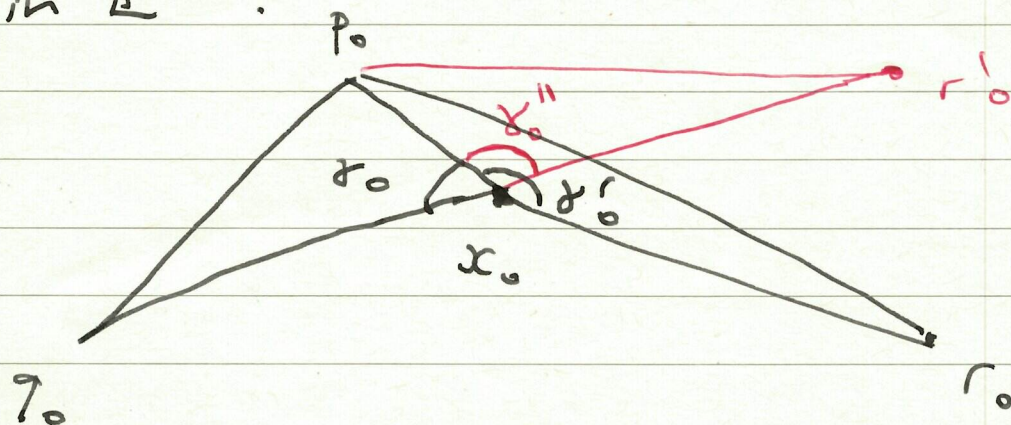 in E .
p₀
r'₀
γ₀''
γ₀
γ'₀
x₀
q₀
r₀